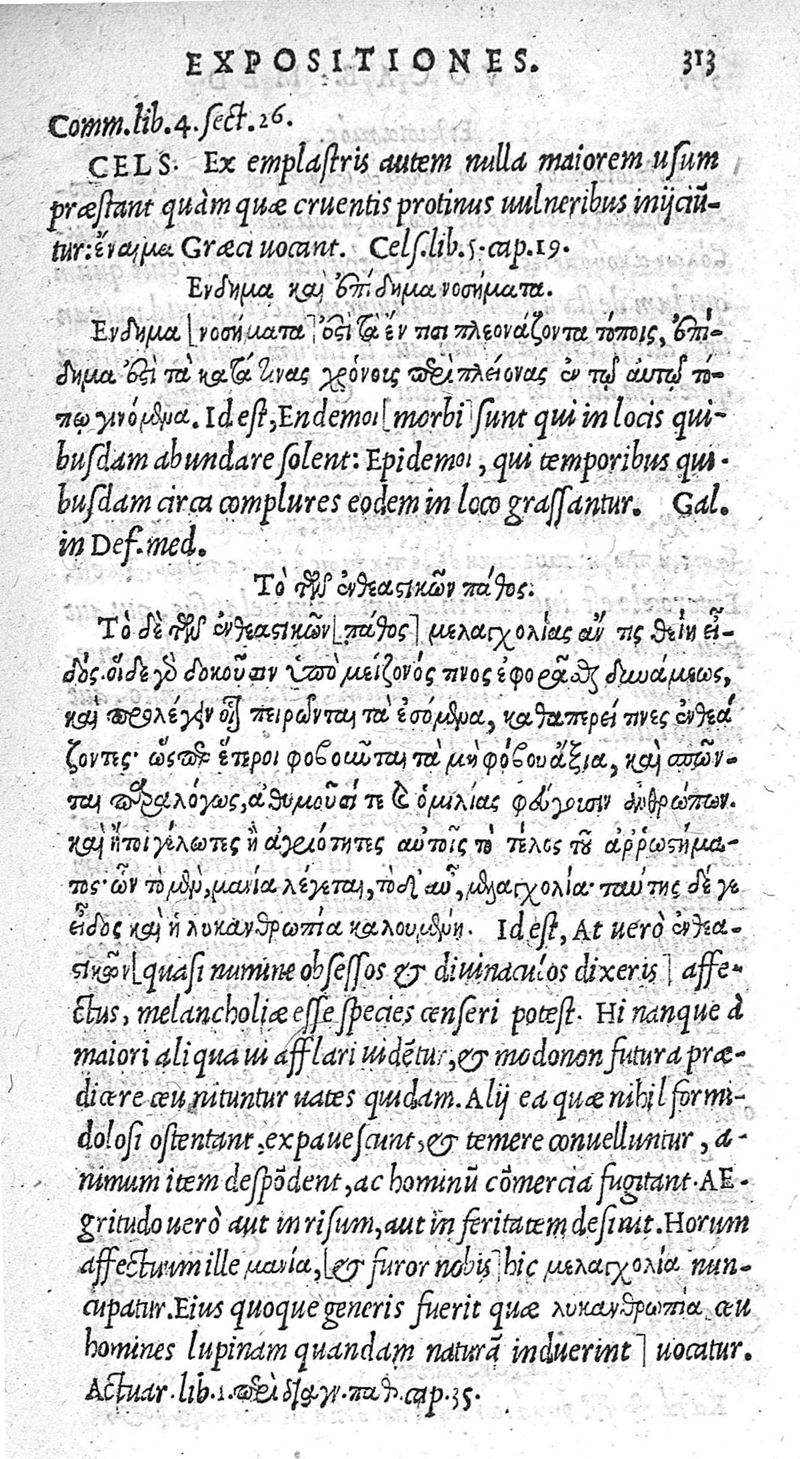 EXPOSITIONES. 313
Comm.lib.4.sect.26.
CELS. Ex emplastris autem nulla maiorem usum
præstant quàm quæ cruentis protinus uulneribus inijciũ-
tur: ἔναιμα Græci uocant. Cels.lib.5.cap.19.
Ενδημα καὶ ἐπίδημα νοσήματα.
Ενδημα [νοσήματα] ἐστὶ τὰ ἔν τισι πλεονάζοντα τόποις, ἐπί-
δημα ἐστὶ τὰ κατά τινας χρόνοις περὶ πλείονας ἐν τῷ αὐτῷ τό-
πῳ γινόμενα. Id est, Endemoi [morbi] sunt qui in locis qui-
busdam abundare solent: Epidemoi, qui temporibus qui-
busdam circa complures eodem in loco grassantur. Gal.
in Def.med.
Τὸ τῶν ἐνθεαστικῶν πάθος.
Τὸ δὲ τῶν ἐνθεαστικῶν [πάθος] μελαγχολίας ἄν τις θείη εἶ-
δος. οἵδε γὰρ δοκοῦσιν ὑπὸ μείζονός τινος ἐφορᾶσθαι δυνάμεως,
καὶ προλέγειν οἱ πειρῶνται τὰ ἐσόμενα, καθαπερεί τινες ἐνθεά
ζοντες· ὥσπερ ἕτεροι φοβοῦνται τὰ μὴ φόβου ἄξια, καὶ σπῶν-
ται παραλόγως, ἀθυμοῦσί τε καὶ ὁμιλίας φεύγουσιν ἀνθρώπων.
καὶ ἤτοι γέλωτες ἢ ἀγριότητες αὐτοῖς τὸ τέλος τοῦ ἀρρωστήμα-
τος· ὧν τὸ μὲν, μανία λέγεται, τὸ δ' αὖ, μελαγχολία· ταύτης δέ γε
εἶδος καὶ ἡ λυκανθρωπία καλουμένη. Id est, At uerò ἐνθεα-
στικῶν [quasi numine obsessos & diuinaculos dixeris] affe-
ctus, melancholiæ esse species censeri potest. Hi nanque à
maiori aliqua ui afflari uidẽtur, & modo non futura præ-
dicere ceu nituntur uates quidam. Alij ea quæ nihil formi-
dolosi ostentant, expauescunt, & temere conuelluntur, a-
nimum item despõdent, ac hominũ cõmercia fugitant. AE-
gritudo uerò aut in risum, aut in feritatem desinit. Horum
affectuum ille μανία, [& furor nobis] hic μελαγχολία nun-
cupatur. Eius quoque generis fuerit quæ λυκανθρωπία ceu
homines lupinam quandam naturã induerint] uocatur.
Actuar.lib.1.περὶ διαγν.παθ.cap.35.